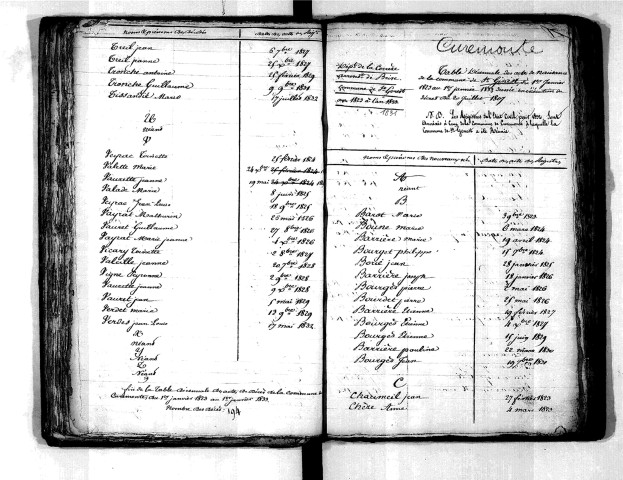 Noms & prénoms des décédés Dates des actes ou Reg.
Treil jean 6 7bre 1827
Treil jeanne 1827
Tronche antoine 25 février 1829
Tronche Guillaume 9 1831
Tissandié Marie 17 juillet 1832
U
néant
V
Veyrac Toinette 25 février 1824
Valette Marie 24
Vaurette jeanne 19 mai
Valade Marie 8 juin 1825
Veyrac Jean Louis 18 9bre 1825
Vayrac Mathurin 20 mai 1826
Vauret Guillaume 27 8bre 1826
Vayrac Marie jeanne 4 1826
Vicary Toinette 2 8bre 1827
Valette jeanne 20 7bre 1828
Vigne Peyronne 2 9bre 1828
Vaurette jeanne 9 1828
Vauret jean 5 mai 1829
Verdet marie 13 9bre 1829
Verdes jean Louis 17 mai 1832
X
néant
Y
Néant
Z
Néant
fin de la Table décennale des actes de décès de la commune de
Curemonte, du 1er janvier 1823 au 1er janvier 1833
Nombre des décès. 194
Curemonte
Dépt de la Corrèze
arrondt de Brive
Commune de St Genest
an 1823 à l'an 1833
1831
Table Décennale des actes de Naissance
de la commune de St Genest du 1er janvier
1823 au 1er janvier 1833 dressée en exécution du
décret du 20 juillet 1807
N.B. Les Registres de l'état Civil pour 1832 sont
de la commune de Curemonte à laquelle la
Commune de St Genest a été Réunie
Noms & prénoms des nouveaux nés Dates des actes ou Registres
A
néant
B
Barot Marie 1823
Boüne marie 6 mars 1824
Barrière marie 19 avril 1824
Bourgot philippe 15 9bre 1824
Boué jean 28 janvier 1825
Barrière joseph 18 janvier 1826
Bourgès pierre 2 mai 1826
Bourdet pierre 25 mai 1826
Barrière Etienne 19 février 1827
Bourgès Etienne 4 1827
Bourgès Etienne 15 juin 1829
Barrière pauline 22 mars 1830
Bourgès Jean 19 1831
C
Charmeil jean 27 février 1823
Chèze Anne 4 mars 1823